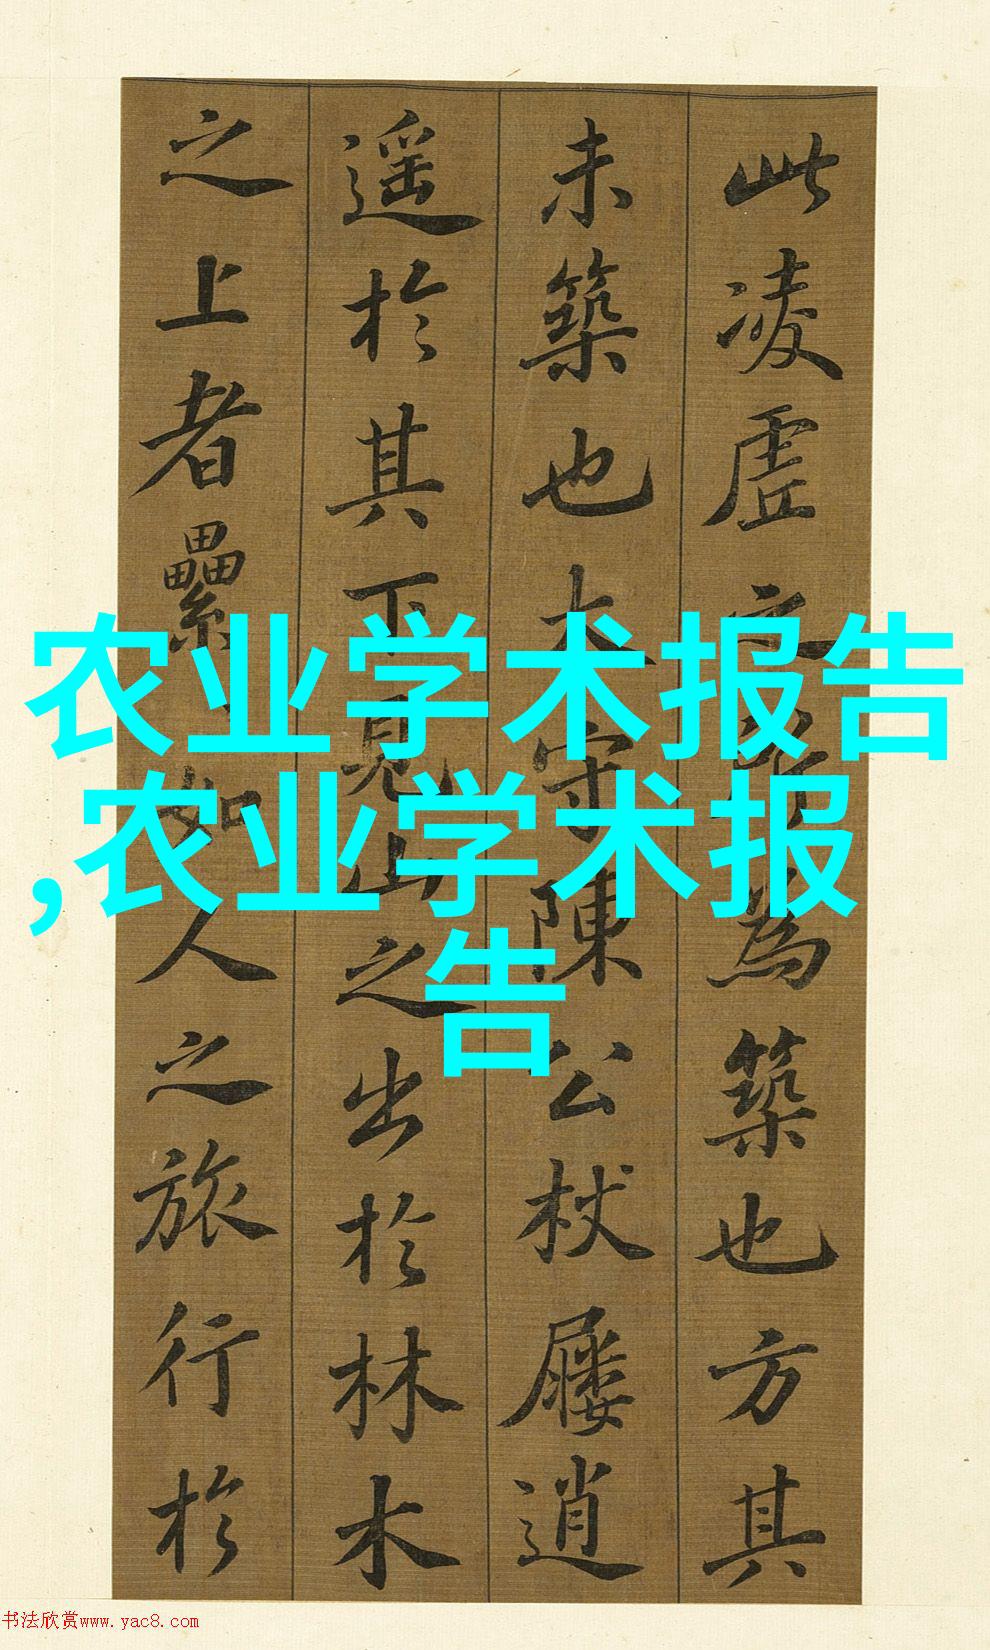 此凌虛之所為築也方其
未築也太守陳公杖屨逍
遥於其下見山之出於林木
之上者纍々如人之旅行於
农业学术报告
,农业学术报
告
书法欣赏www.yac8.com